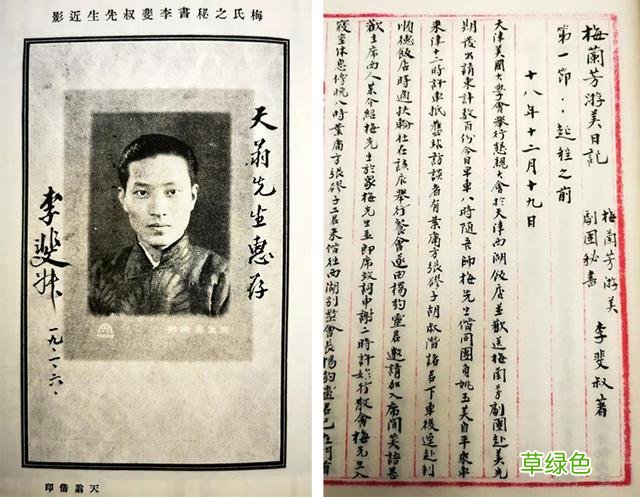 梅氏之秘書李斐叔先生近影
天翁先生惠存
李斐叔
一九·二·六·
天翁借印
梅蘭芳游美日記
梅蘭芳游美
劇團秘書 李斐叔著
第一節：起程之前
十八年十二月十九日
天津美國大學會舉行懇親大會於天津西湖飯店並歡送梅蘭芳劇團赴美先
期發出請柬計數百份今日早車八時隨吾師梅先生偕同團員姚玉芙自平來車
來津十二時許車抵舊站訪談者有葉庸方張繆子胡叔潛諸君下車後逕赴利
順德飯店時適扶輪社在該店舉行餐會遂由楊豹靈君邀請加入席間笑語甚
歡主席西人某介紹梅先生於眾梅先生並即席致詞申謝二時許始行散會梅先生入
寢室休息傍晚八時葉庸方張繆子二君來偕往西湖別墅會長楊豹靈君已在門首
草绿色